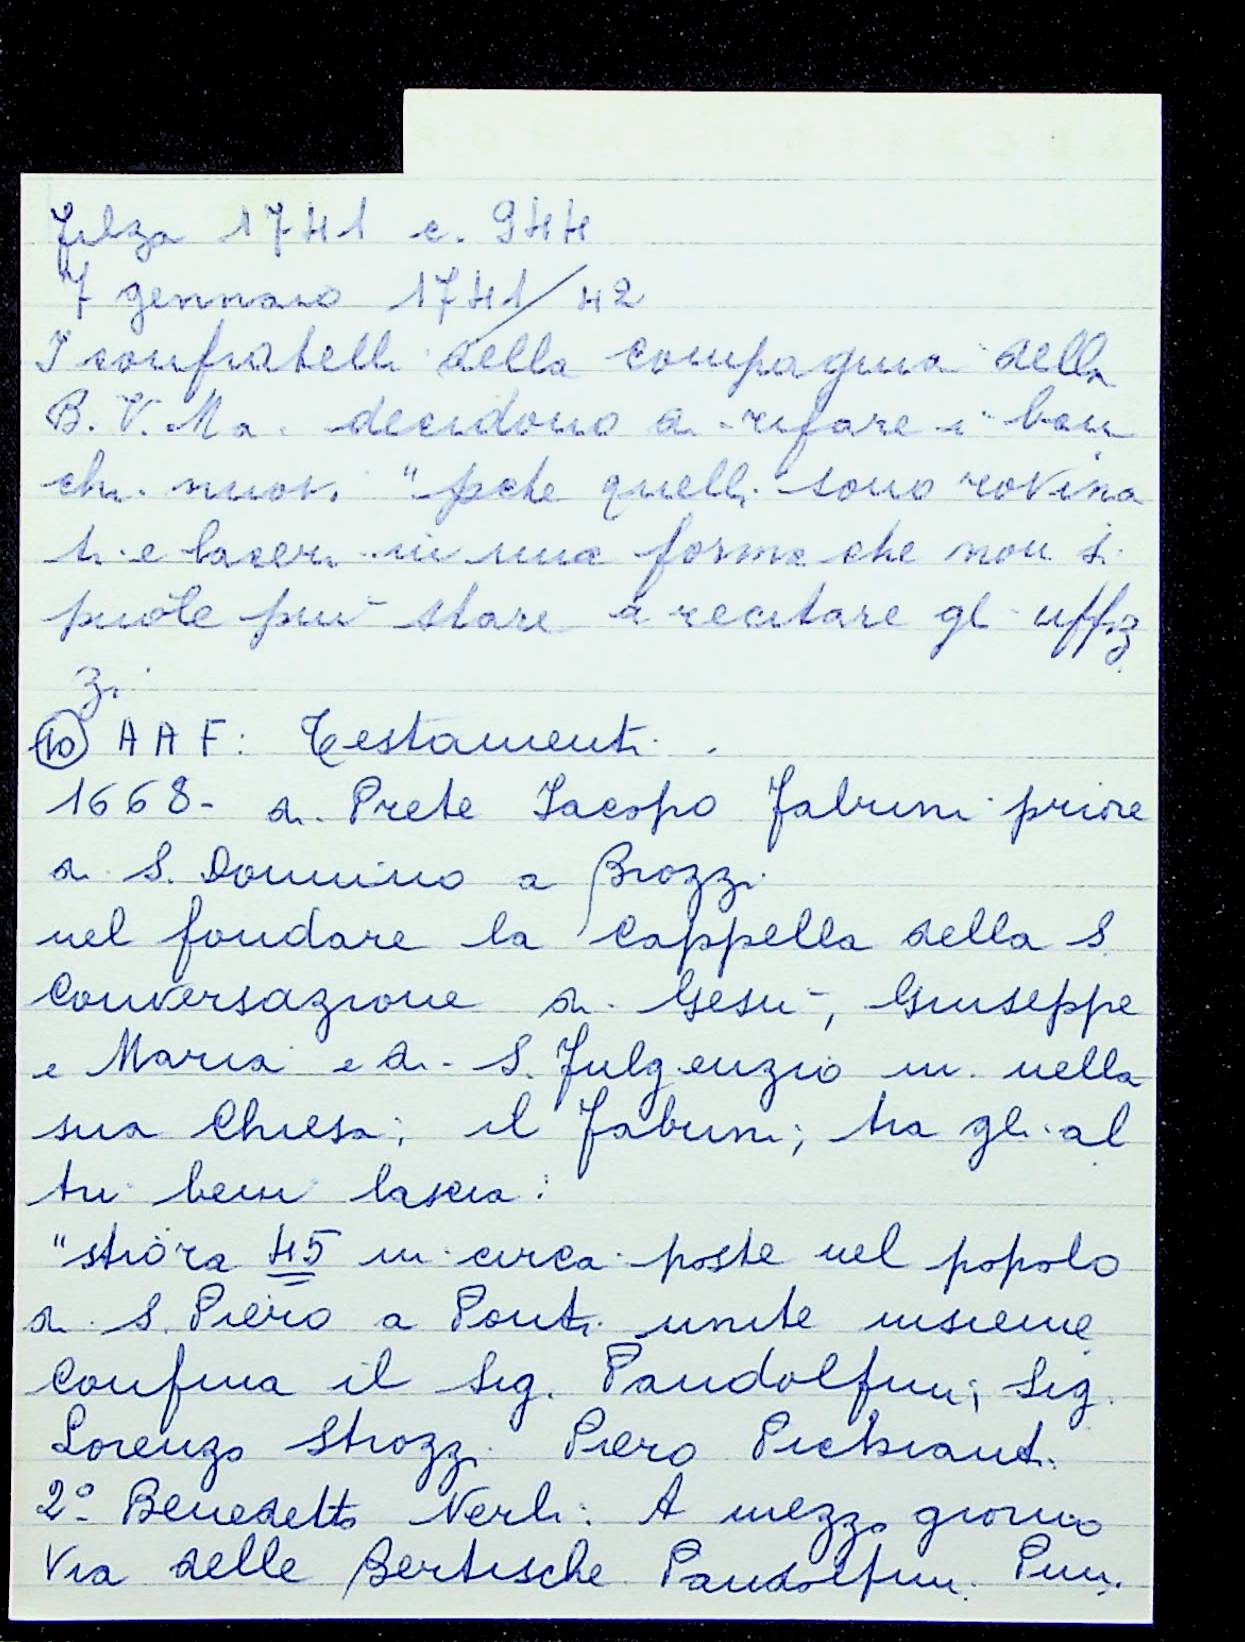 Filza 1741 c. 944
7 gennaio 1741/42
I confratelli della compagnia della
B. V. Ma. decidono di rifare i ban
chi nuovi "pche quelli sono rovina
ti e laceri in una forma che non si
puole piu stare a recitare gl uffiz
zi
(10) A A F: Testamenti.
1668- di Prete Iacopo Fabrini priore
di S. Donnino a Brozzi
nel fondare la Cappella della S.
Conversazione di Gesu, Giuseppe
e Maria e di S. Fulgenzio in nella
sua Chiesa; il Fabrini; tra gli al
tri beni lascia:
"stiora 45 in circa poste nel popolo
di S. Piero a Ponti unite insieme
Confina il Sig. Pandolfini; Sig.
Lorenzo Strozzi Piero
2º Benedetto Nerli: A mezzo giorno
Via delle Bertesche Pandolfini